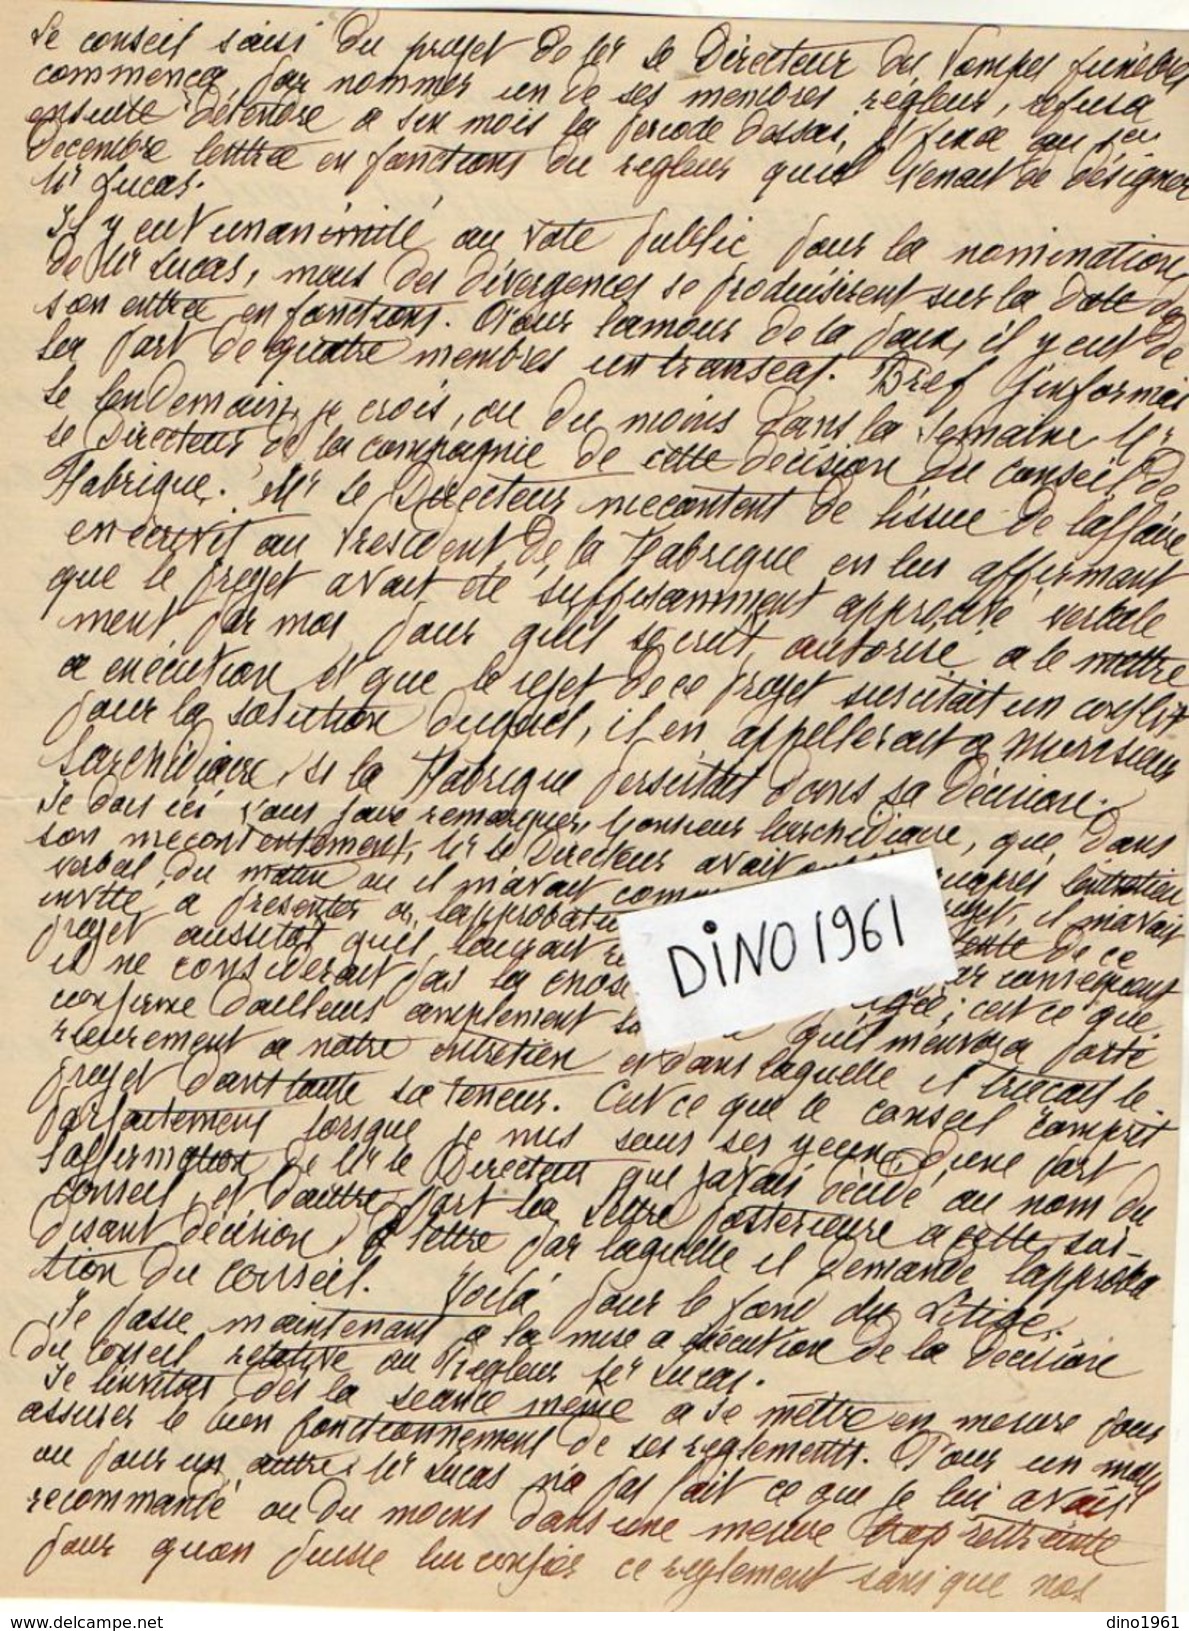 Le conseil saisi du projet de Mr le Directeur des Pompes funèbres
commença par nommer un de ses membres régleur, refusa
ensuite d'étendre a six mois la periode dessai, et fixa au 1er
Decembre lentrée en fonctions du regleur quil venait de désigner
Mr Lucas.
Il y eut unanimité au vote public pour la nomination
de Mr Lucas, mais des divergences se produisirent sur la date de
son entrée en fonctions. Pour lamour de la paix, il y eut de
la part de quatre membres un transeat. Bref j'informai
le lendemain, je crois, ou du moins dans la semaine Mr
le Directeur de la compagnie de cette decision du conseil de
Fabrique. Mr le Directeur mecontent de lissue de laffaire
en écrivit au President de la Fabrique en lui affirmant
que le projet avait eté suffisamment approuvé verbale
ment par moi pour quil se crut autorisé a le mettre
a exécution et que le rejet de ce projet suscitait un conflit
pour la solution duquel, il en appellerait a Monsieur
Larchidiacre, si la Fabrique persistait dans sa decision.
Je dois ici vous faire remarquer, Monsieur Larchidiacre, que, dans
son mecontentement, Mr le Directeur avait quapres lentretien
verbal du matin ou il m'avait il m'avait
invité a presenter a lapprobation de ce
projet aussitot quil par consequent
il ne considerait pas la chose cest ce que
confirme dailleurs amplement quil menvoya posté
rieurement a notre entretien et dans laquelle il traçait le
projet dans toute sa teneur. Cest ce que le conseil comprit
parfaitement lorsque je mis sous ses yeux, d'une part
laffirmation de Mr le Directeur que javais décidé au nom du
conseil, et dautre part la lettre posterieure a cette soi-
disant décision, lettre par laquelle il demande lapproba
tion du conseil. Voilà pour le fond du Litige.
Je passe maintenant a la mise a exécution de la decision
du conseil relative au Regleur Mr Lucas.
Je linvitai dès la séance même a se mettre en mesure pour
assurer le bon fonctionnement de ses reglements. Pour un motif
ou pour un autre Mr Lucas n'a pas fait ce que je lui avais
recommandé ou du moins dans une mesure trop restreinte
pour quon puisse lui confier ce reglement sans que nos
DINO 1961
dino1961